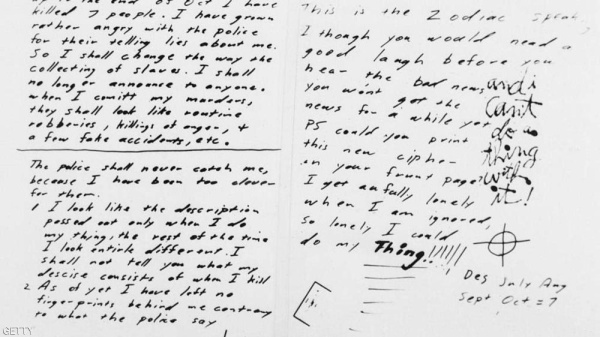 the end of Oct I have
killed 7 people. I have grown
rather angry with the police
for their telling lies about me.
So I shall change the way the
collecting of slaves. I shall
no longer announce to anyone.
when I comitt my murders,
they shall look like routine
robberies, killings of anger, +
a few fake accidents, etc.
The police shall never catch me,
because I have been too clever
for them.
1 I look like the description
passed out only when I do
my thing, the rest of the time
I look entirle different. I
shall not tell you what my
descise consists of when I kill
2 As of yet I have left no
fingerprints behind me contrary
to what the police say
1
This is the Zodiac speak
I though you would need a
good laugh before you
hear the bad news
you won't get the
news for a while yet
PS could you print
this new cipher
on your frunt page?
I get awfully lonely
when I am ignored,
so lonely I could
do my Thing!!!!!!
and i
can't
do a
thing
with
it!
Des July Aug
Sept Oct = 7
GETTY